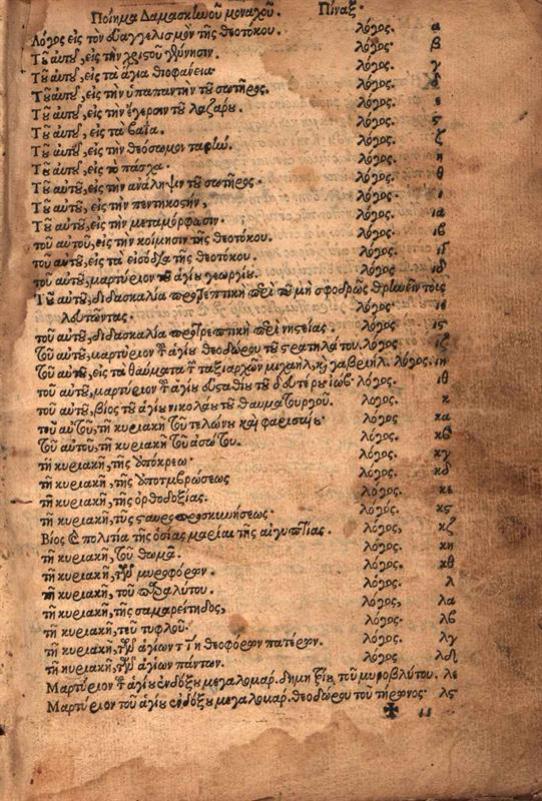 Ποίημα Δαμασκηνοῦ μοναχοῦ. Πίναξ·
Λόγος εἰς τὸν εὐαγγελισμὸν τῆς θεοτόκου. λόγος. α
Τοῦ αὐτοῦ, εἰς τὴν χριστοῦ γέννησιν. λόγος· β
Τοῦ αὐτοῦ, εἰς τὰ ἅγια θεοφάνεια· λόγος. γ
Τοῦ αὐτοῦ, εἰς τὴν ὑπαπαντὴν τοῦ σωτῆρος. λόγος. δ
Τοῦ αὐτοῦ, εἰς τὴν ἔγερσιν τοῦ λαζάρου. λόγος. ε
Τοῦ αὐτοῦ, εἰς τὰ βαΐα. λόγος. ς
Τοῦ αὐτοῦ, εἰς τὴν θεόσωμον ταφὴν. λόγος. ζ
Τοῦ αὐτοῦ, εἰς τὸ πάσχα. λόγος. η
Τοῦ αὐτοῦ, εἰς τὴν ἀνάληψιν τοῦ σωτῆρος· λόγος. θ
Τοῦ αὐτοῦ, εἰς τὴν πεντηκοστήν, λόγος. ι
Τοῦ αὐτοῦ, εἰς τὴν μεταμόρφωσιν· λόγος. ια
τοῦ αὐτοῦ, εἰς τὴν κοίμησιν τῆς θεοτόκου. λόγος. ιβ
τοῦ αὐτοῦ, εἰς τὰ εἰσόδια τῆς θεοτόκου. λόγος.
τοῦ αὐτοῦ, μαρτύριον τοῦ ἁγίου γεωργίου. λόγος. ιδ
Τοῦ αὐτοῦ, διδασκαλία προτρεπτικὴ περὶ τοῦ μὴ σφοδρῶς θρηνεῖν τοὺς
λευτῶντας. λόγος· ιε
τοῦ αὐτοῦ, διδασκαλία προτρεπτικὴ περὶ νηστείας. λόγος. ις
τοῦ αὐτοῦ, μαρτύριον τοῦ ἁγίου θεοδώρου τοῦ στρατηλάτου. λόγος. ιζ
τοῦ αὐτοῦ, εἰς τὰ θαύματα τῶν ταξιαρχῶν μιχαὴλ, καὶ γαβριὴλ. λόγος. ιη
τοῦ αὐτοῦ, μαρτύριον τοῦ ἁγίου εὐσταθίου τοῦ δευτέρου ἰώβ· λόγος. ιθ
τοῦ αὐτοῦ, βίος τοῦ ἁγίου νικολάου τοῦ θαυματουργοῦ. λόγος. κ
τοῦ αὐτοῦ, τῇ κυριακῇ τοῦ τελώνου καὶ φαρισαίου· λόγος κα
τοῦ αὐτοῦ, τῇ κυριακῇ τοῦ ἀσώτου. λόγος. κβ
τῇ κυριακῇ, τῆς ἀπόκρεω· λόγος. κγ
τῇ κυριακῇ, τῆς λόγος. κδ
τῇ κυριακῇ, τῆς ὀρθοδοξίας. λόγος. κε
τῇ κυριακῇ, τῆς σταυροπροσκυνήσεως· λόγος. κς
Βίος καὶ πολιτεία τῆς ὁσίας μαρίας τῆς αἰγυπτίας. λόγος, κζ
τῇ κυριακῇ, τοῦ θωμᾶ. λόγος. κη
τῇ κυριακῇ, τῶν μυροφόρων. λόγος. κθ
τῇ κυριακῇ, τοῦ παραλύτου. λόγος. λ
τῇ κυριακῇ, τῆς σαμαρείτηδος, λόγος, λα
τῇ κυριακῇ, τοῦ τυφλοῦ· λόγος· λβ
τῇ κυριακῇ, τῶν ἁγίων θεοφόρων πατέρων. λόγος. λγ
τῇ κυριακῇ, τῶν ἁγίων πάντων. λόγος λδ
Μαρτύριον τοῦ ἁγίου ἐνδόξου μεγαλομαρ. δημητρίου, τοῦ μυροβλύτου. λε
Μαρτύριον τοῦ ἁγίου ἐνδόξου μεγαλομαρ. θεοδώρου τοῦ τήρονος· λς